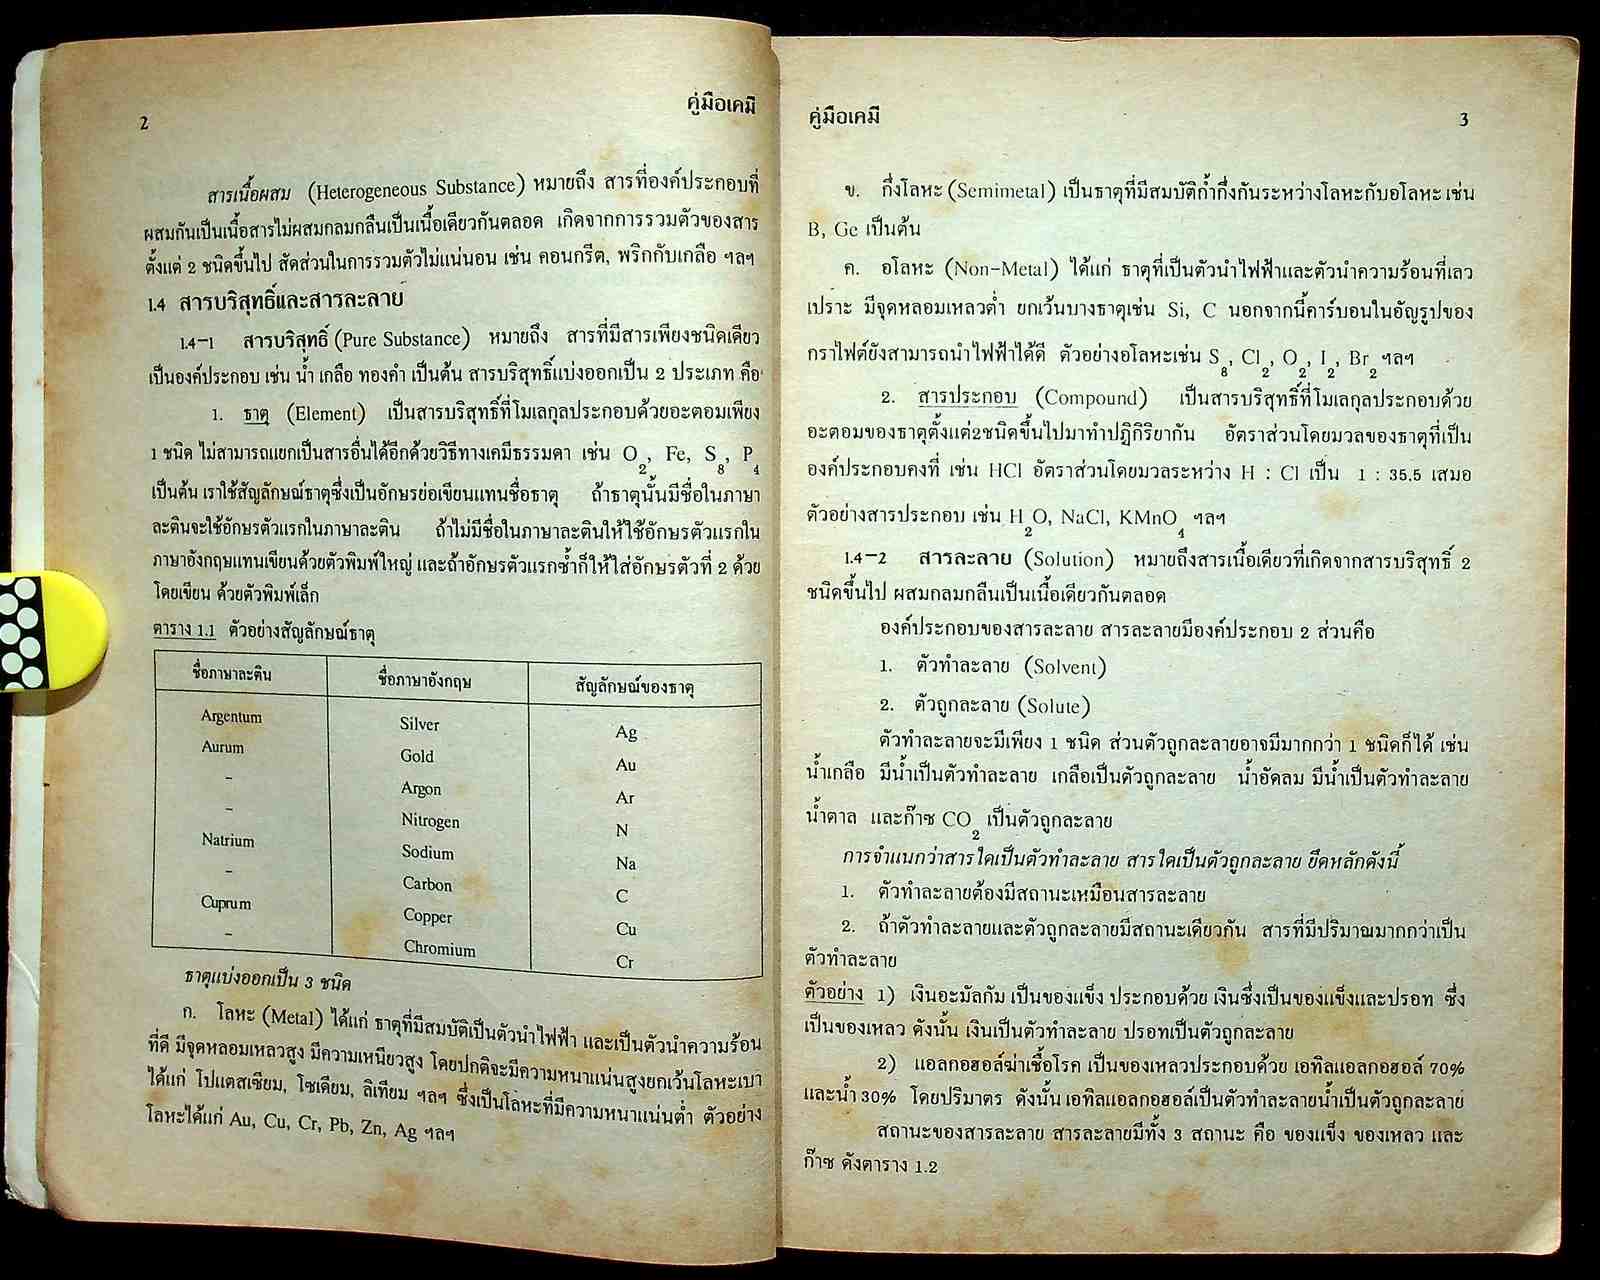 2
คู่มือเคมี
สารเนื้อผสม (Heterogeneous Substance) หมายถึง สารที่องค์ประกอบที่
ผสมกันเป็นเนื้อสารไม่ผสมกลมกลืนเป็นเนื้อเดียวกันตลอด เกิดจากการรวมตัวของสาร
ตั้งแต่ 2 ชนิดขึ้นไป สัดส่วนในการรวมตัวไม่แน่นอน เช่น คอนกรีต, พริกกับเกลือ ฯลฯ
1.4 สารบริสุทธิ์และสารละลาย
1.4-1 สารบริสุทธิ์ (Pure Substance) หมายถึง สารที่มีสารเพียงชนิดเดียว
เป็นองค์ประกอบ เช่น น้ำ เกลือ ทองคำ เป็นต้น สารบริสุทธิ์แบ่งออกเป็น 2 ประเภท คือ
1. ธาตุ (Element) เป็นสารบริสุทธิ์ที่โมเลกุลประกอบด้วยอะตอมเพียง
1 ชนิด ไม่สามารถแยกเป็นสารอื่นได้อีกด้วยวิธีทางเคมีธรรมดา เช่น O₂, Fe, S₈, P₄
เป็นต้น เราใช้สัญลักษณ์ธาตุซึ่งเป็นอักษรย่อเขียนแทนชื่อธาตุ ถ้าธาตุนั้นมีชื่อในภาษา
ละตินจะใช้อักษรตัวแรกในภาษาละติน ถ้าไม่มีชื่อในภาษาละตินให้ใช้อักษรตัวแรกใน
ภาษาอังกฤษแทนเขียนด้วยตัวพิมพ์ใหญ่ และถ้าอักษรตัวแรกซ้ำก็ให้ใส่อักษรตัวที่ 2 ด้วย
โดยเขียน ด้วยตัวพิมพ์เล็ก
ตาราง 1.1 ตัวอย่างสัญลักษณ์ธาตุ
ชื่อภาษาละติน ชื่อภาษาอังกฤษ สัญลักษณ์ของธาตุ
Argentum Silver Ag
Aurum Gold Au
– Argon Ar
– Nitrogen N
Natrium Sodium Na
– Carbon C
Cuprum Copper Cu
– Chromium Cr
ธาตุแบ่งออกเป็น 3 ชนิด
ก. โลหะ (Metal) ได้แก่ ธาตุที่มีสมบัติเป็นตัวนำไฟฟ้า และเป็นตัวนำความร้อน
ที่ดี มีจุดหลอมเหลวสูง มีความเหนียวสูง โดยปกติจะมีความหนาแน่นสูงยกเว้นโลหะเบา
ได้แก่ โปแตสเซียม, โซเดียม, ลิเทียม ฯลฯ ซึ่งเป็นโลหะที่มีความหนาแน่นต่ำ ตัวอย่าง
โลหะได้แก่ Au, Cu, Cr, Pb, Zn, Ag ฯลฯ
คู่มือเคมี
3
ข. กึ่งโลหะ (Semimetal) เป็นธาตุที่มีสมบัติก้ำกึ่งกันระหว่างโลหะกับอโลหะ เช่น
B, Ge เป็นต้น
ค. อโลหะ (Non-Metal) ได้แก่ ธาตุที่เป็นตัวนำไฟฟ้าและตัวนำความร้อนที่เลว
เปราะ มีจุดหลอมเหลวต่ำ ยกเว้นบางธาตุเช่น Si, C นอกจากนี้คาร์บอนในอัญรูปของ
กราไฟต์ยังสามารถนำไฟฟ้าได้ดี ตัวอย่างอโลหะเช่น S₈, Cl₂, O₂, I₂, Br₂ ฯลฯ
2. สารประกอบ (Compound) เป็นสารบริสุทธิ์ที่โมเลกุลประกอบด้วย
อะตอมของธาตุตั้งแต่2ชนิดขึ้นไปมาทำปฏิกิริยากัน อัตราส่วนโดยมวลของธาตุที่เป็น
องค์ประกอบคงที่ เช่น HCl อัตราส่วนโดยมวลระหว่าง H : Cl เป็น 1 : 35.5 เสมอ
ตัวอย่างสารประกอบ เช่น H₂O, NaCl, KMnO₄ ฯลฯ
1.4-2 สารละลาย (Solution) หมายถึงสารเนื้อเดียวที่เกิดจากสารบริสุทธิ์ 2
ชนิดขึ้นไป ผสมกลมกลืนเป็นเนื้อเดียวกันตลอด
องค์ประกอบของสารละลาย สารละลายมีองค์ประกอบ 2 ส่วนคือ
1. ตัวทำละลาย (Solvent)
2. ตัวถูกละลาย (Solute)
ตัวทำละลายจะมีเพียง 1 ชนิด ส่วนตัวถูกละลายอาจมีมากกว่า 1 ชนิดก็ได้ เช่น
น้ำเกลือ มีน้ำเป็นตัวทำละลาย เกลือเป็นตัวถูกละลาย น้ำอัดลม มีน้ำเป็นตัวทำละลาย
น้ำตาล และก๊าซ CO₂ เป็นตัวถูกละลาย
การจำแนกว่าสารใดเป็นตัวทำละลาย สารใดเป็นตัวถูกละลาย ยึดหลักดังนี้
1. ตัวทำละลายต้องมีสถานะเหมือนสารละลาย
2. ถ้าตัวทำละลายและตัวถูกละลายมีสถานะเดียวกัน สารที่มีปริมาณมากกว่าเป็น
ตัวทำละลาย
ตัวอย่าง 1) เงินอะมัลกัม เป็นของแข็ง ประกอบด้วย เงินซึ่งเป็นของแข็งและปรอท ซึ่ง
เป็นของเหลว ดังนั้น เงินเป็นตัวทำละลาย ปรอทเป็นตัวถูกละลาย
2) แอลกอฮอล์ฆ่าเชื้อโรค เป็นของเหลวประกอบด้วย เอทิลแอลกอฮอล์ 70%
และน้ำ 30% โดยปริมาตร ดังนั้น เอทิลแอลกอฮอล์เป็นตัวทำละลายน้ำเป็นตัวถูกละลาย
สถานะของสารละลาย สารละลายมีทั้ง 3 สถานะ คือ ของแข็ง ของเหลว และ
ก๊าซ ดังตาราง 1.2